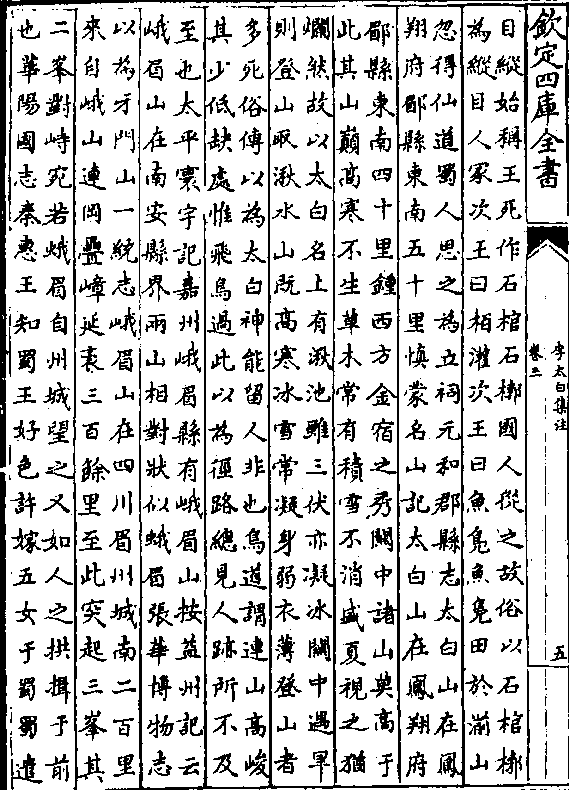 欽定四庫全書
李太白集注
卷三
五
目縱始稱王死作石棺石槨國人從之故俗以石棺槨
為縱目人冢次王曰栢灌次王曰魚鳧魚鳧田於湔山
忽得仙道蜀人思之為立祠元和郡縣志太白山在鳳
翔府郿縣東南五十里慎蒙名山記太白山在鳳翔府
郿縣東南四十里鍾西方金宿之秀關中諸山莫高于
此其山巔高寒不生草木常有積雪不消盛夏視之猶
爛然故以太白名上有湫池雖三伏亦凝冰關中遇旱
則登山取湫水山既高寒冰雪常凝身弱衣薄登山者
多死俗傳以為太白神能留人非也鳥道謂連山高峻
其少低缺處惟飛鳥過此以為徑路總見人跡所不及
至也太平寰宇記嘉州峨眉縣有峨眉山按益州記云
峨眉山在南安縣界兩山相對狀似蛾眉張華博物志
以為牙門山一統志峨眉山在四川眉州城南二百里
來自峨山連岡疊嶂延袤三百餘里至此突起三峯其
二峯對峙宛若蛾眉自州城望之又如人之拱揖于前
也華陽國志秦惠王知蜀王好色許嫁五女于蜀蜀遣